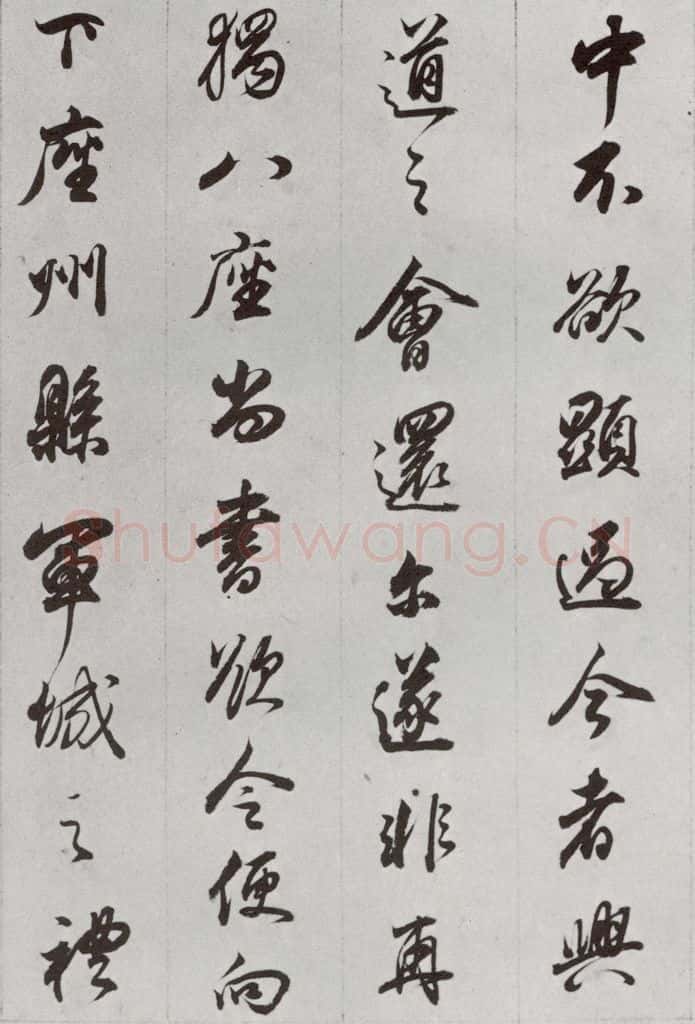 中不欲顯過今者興
道之會還尓遂非再
猲八座尚書欲令便向
下座州縣軍城之禮
Shufawang.CN